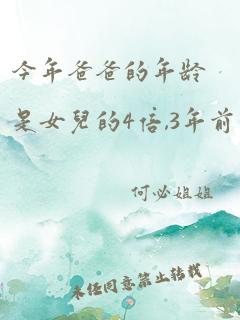 今年爸爸的年龄
是女兒的4倍,3年前
何必姐姐
未经同意禁止转载